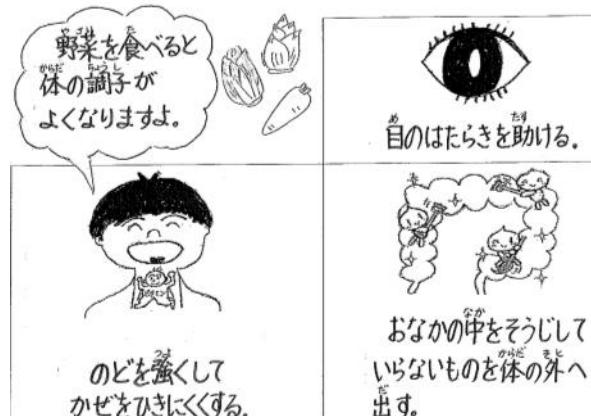 野菜を食べると
体の調子が
よくなりますよ。
目のはたらきを助ける。
のどを強くして
かぜをひきにくくする。
おなかの中をそうじして
いらないものを体の外へ
出す。